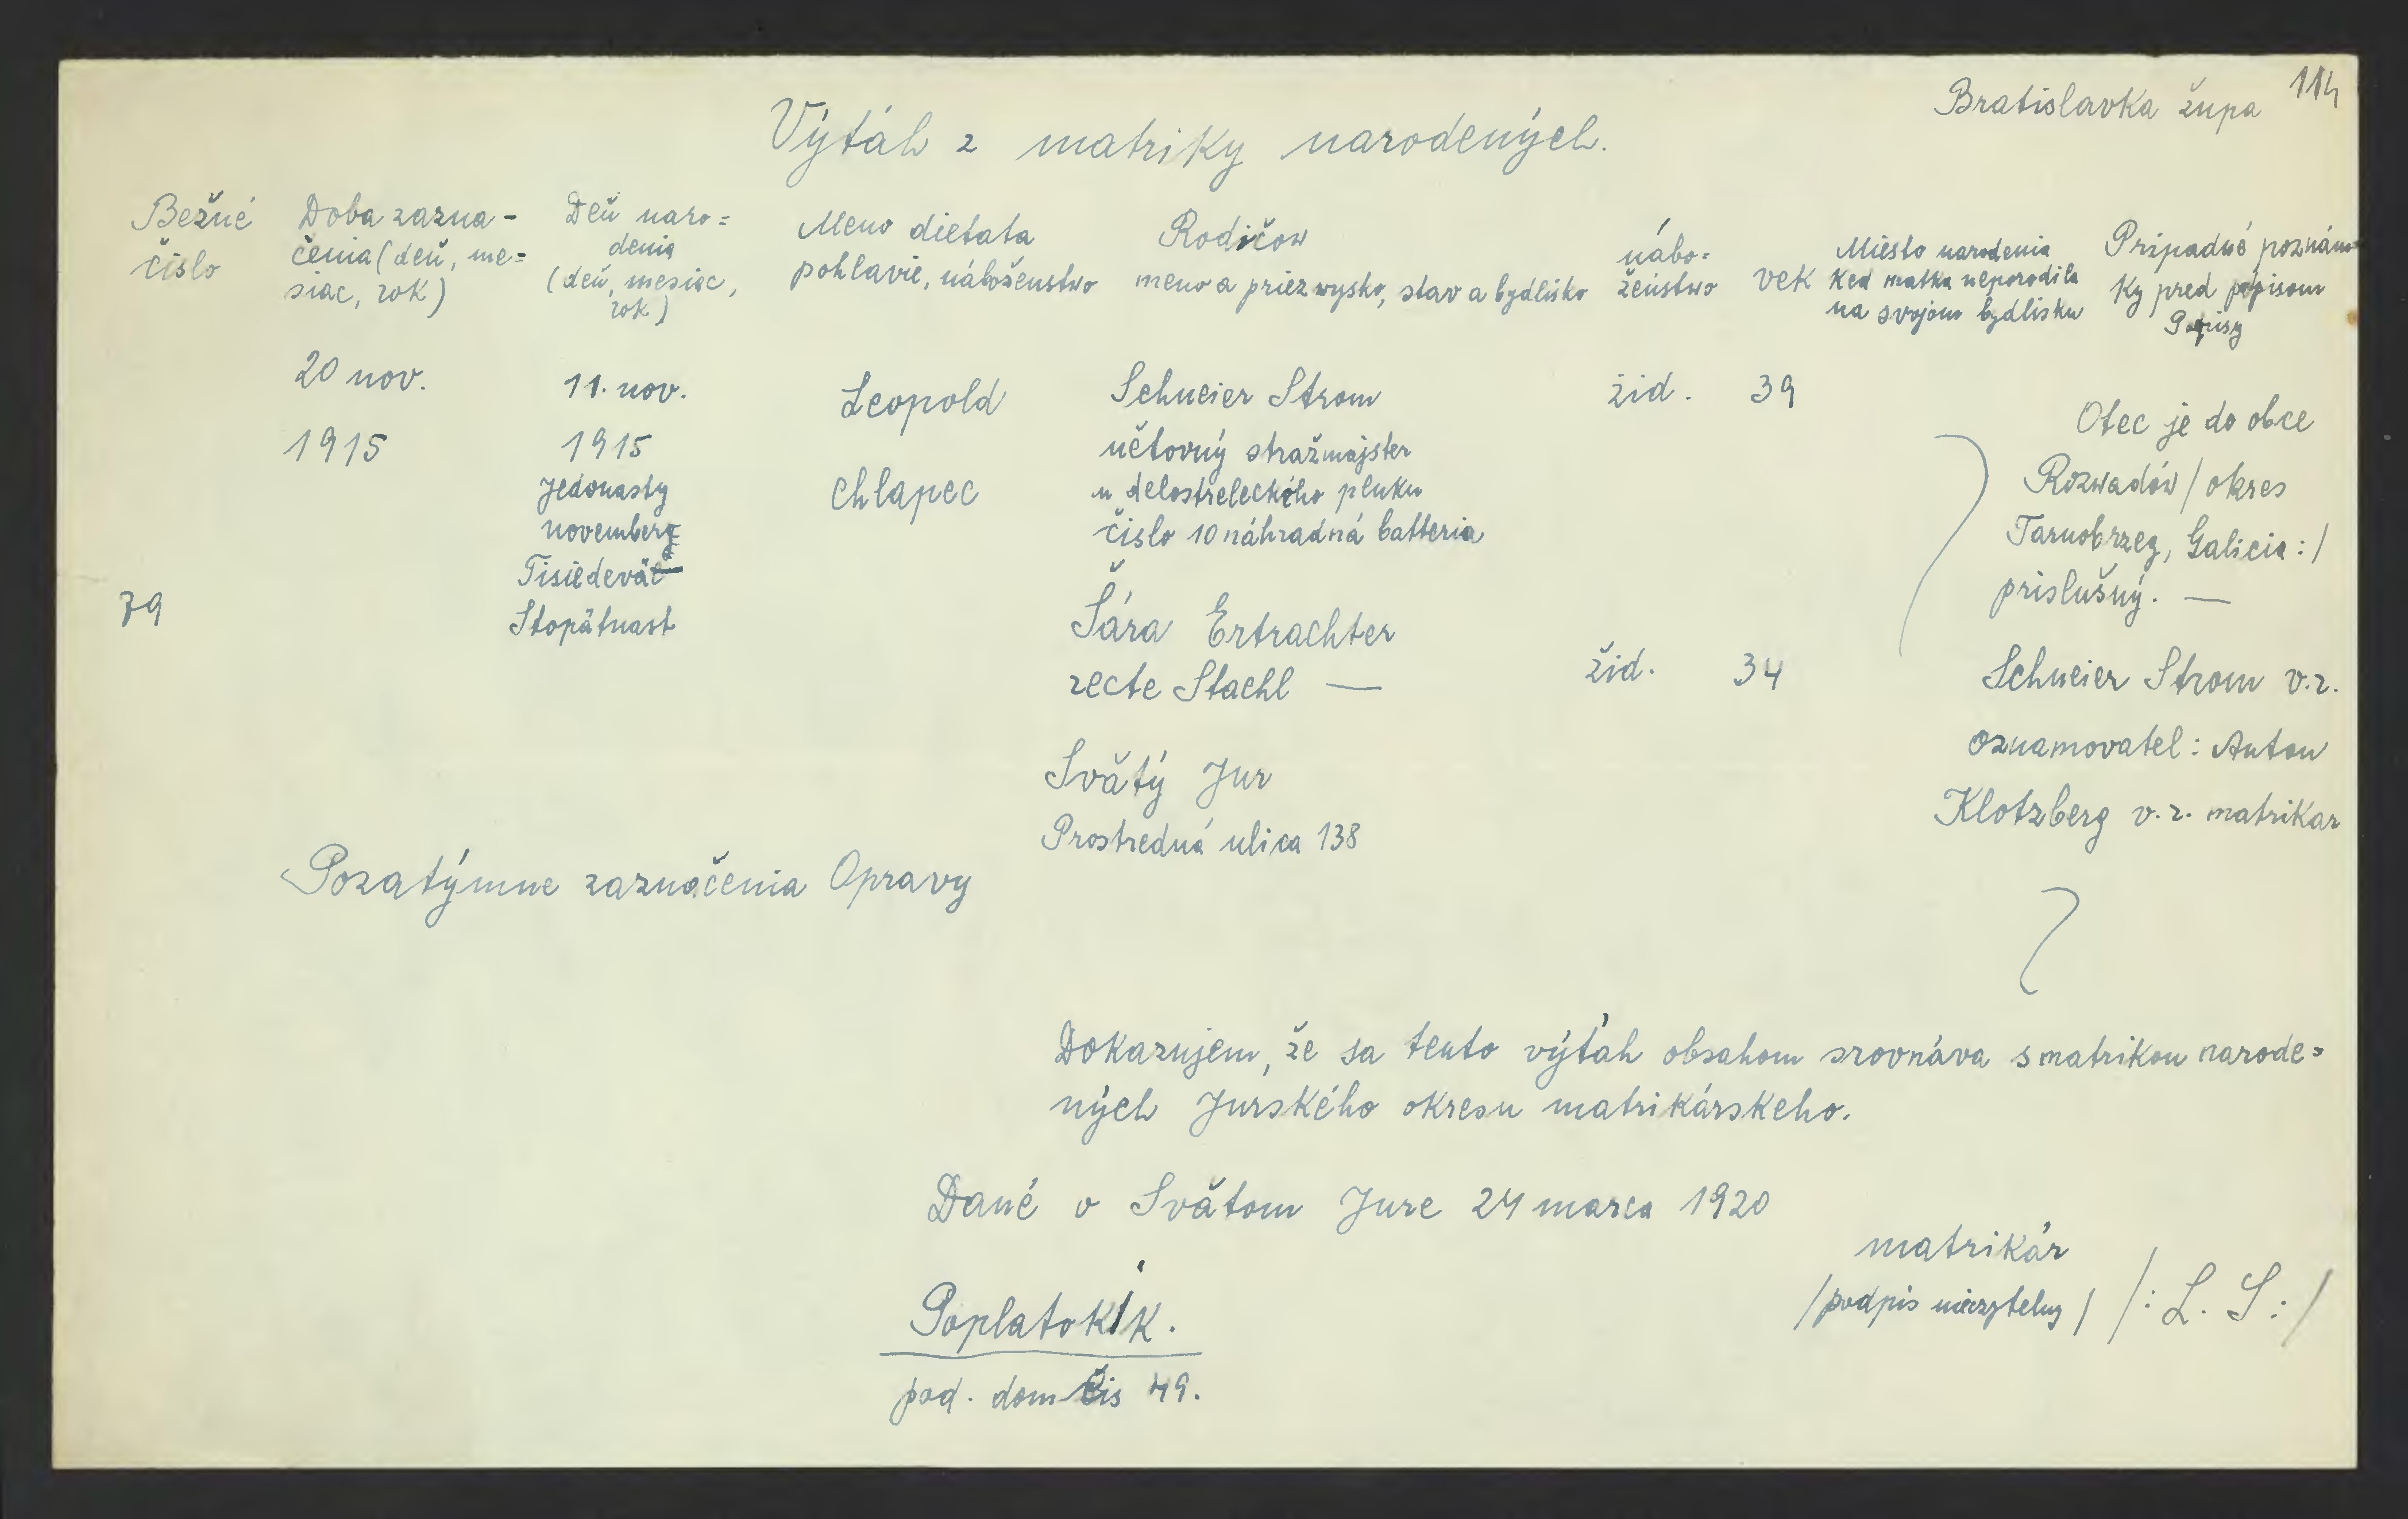 Bratislavka župa 114
Výtáh z matriky narodených.
Bežné
číslo
Doba zazna-
čenia (deň, me=
siac, rok)
Deň naro=
denia
(deň, mesiac,
rok)
Meno dietata
pohlavie, náboženstwo
Rodičow
meno a priezwysko, stav a bydlisko
nábo=
ženstwo
vek
Miesto narodenia
Ked matka neporodila
na svojom bydlisku
Pripadné poznám
ky pred popisom
Popisy
79
20 nov.
1915
11. nov.
1915
Jedonasty
november
Tisícdevät
Stopätnast
Leopold
chlapec
Schneier Strom
účtovný stražmajster
u delostreleckého pluku
číslo 10 náhradná batteria
žid. 39
Šára Ertrachter
recte Stachl —
žid. 34
Svätý Jur
Prostredná ulica 138
Otec je do obce
Rozwadów / okres
Tarnobrzeg, Galicia :/
príslušný. —
Schneier Strom v.r.
oznamovatel : Anton
Klotzberg v. r. matrikar
Pozatýmne zaznačenia Opravy
Dokazujem, že sa tento výťah obsahom srovnáva s matrikou narode=
ných Jurského okresu matrikárskeho.
Dané v Svätom Jure 24 marca 1920
matrikár
/podpis nieczytelny/ /: L. S :/
Poplatok 1 K.
pod. dom čis 49.